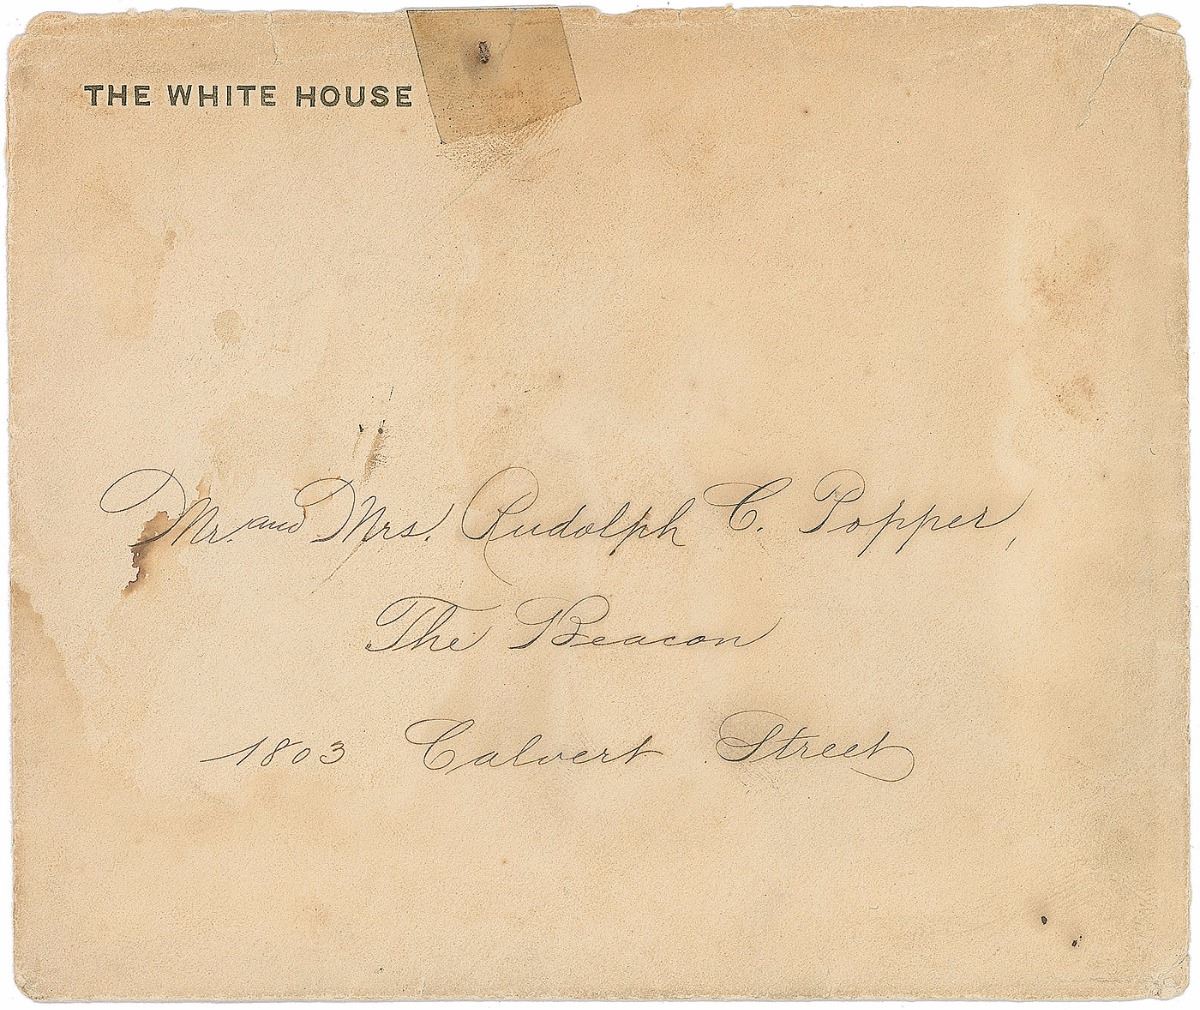 THE WHITE HOUSE
Mr. and Mrs. Rudolph C. Popper,
The Beacon
1803 Calvert Street